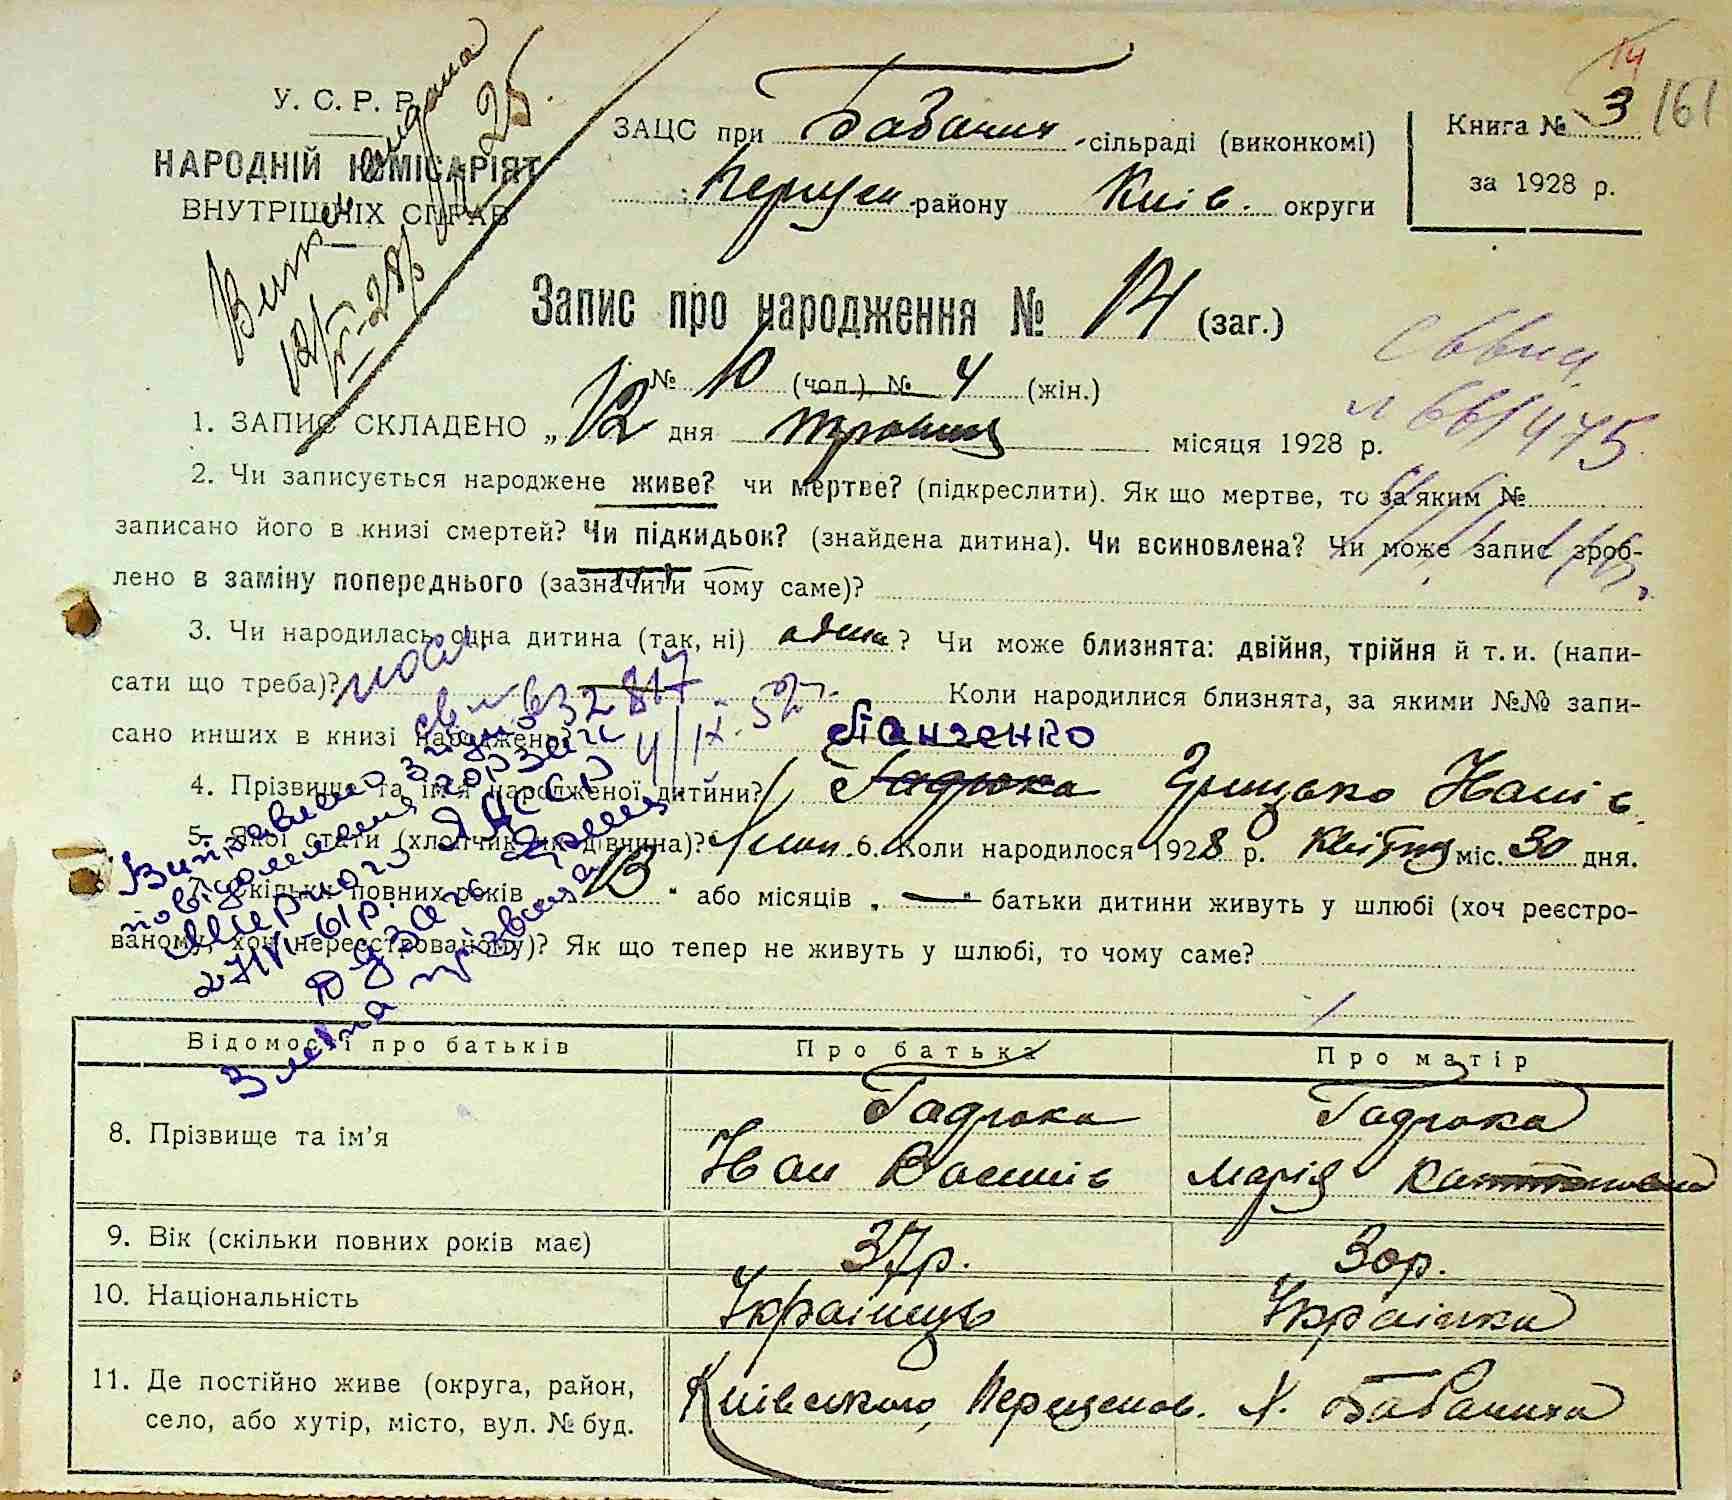 14
161
У. С. Р. Р.
НАРОДНІЙ КОМІСАРІЯТ
ВНУТРІШНІХ СПРАВ
ЗАЦС при Бабаних. сільраді (виконкомі)
району Київ. округи
Книга № 3
за 1928 р.
Запис про народження № 14 (заг.)
№ 10 (чол.) № 4 (жін.)
№ 661475
1. ЗАПИС СКЛАДЕНО „12 дня травня місяця 1928 р.
2. Чи записується народжене живе? чи мертве? (підкреслити). Як що мертве, то за яким №
записано його в книзі смертей? Чи підкидьок? (знайдена дитина). Чи всиновлена? Чи може запис зроб-
лено в заміну попереднього (зазначити чому саме)?
3. Чи народилась одна дитина (так, ні) одна? Чи може близнята: двійня, трійня й т. и. (напи-
сати що треба)? Коли народилися близнята, за якими №№ запи-
сано инших в книзі народжень?
Панченко
4. Прізвище та ім'я народженої дитини? Гадюка Грицько Іванів
5. Якої статі (хлопчик чи дівчина)? 6. Коли народилося 1928 р. квітня міс. 30 дня.
7. Скільки повних років 13 " або місяців „ — " батьки дитини живуть у шлюбі (хоч реєстро-
ваному, хоч нереєстрованому)? Як що тепер не живуть у шлюбі, то чому саме?
Виправлено згідно
повідомлення
Мирного
27/VI-61р.
Зміна прізвища
Відомості про батьків Про батька Про матір
8. Прізвище та ім'я Гадюка Гадюка
Іван Василів Марія
9. Вік (скільки повних років має) 37р. 30р.
10. Національність Українець Українка
11. Де постійно живе (округа, район, Київського, х. Бабаниха
село, або хутір, місто, вул. № буд.